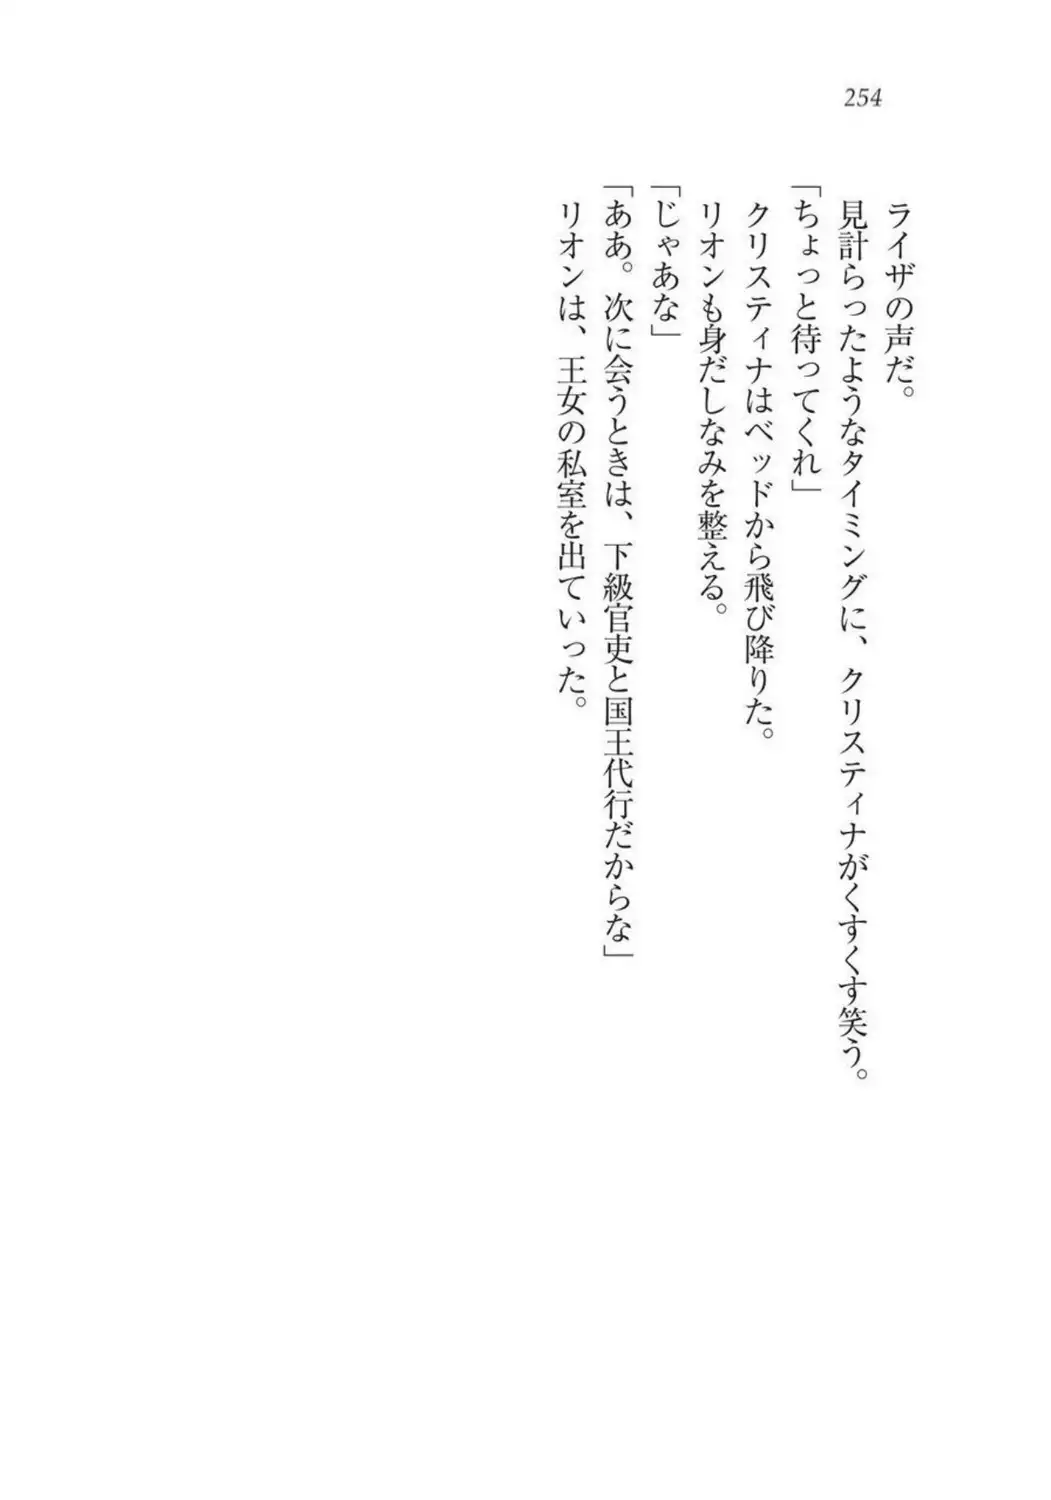 254
ライザの声だ。
見計らったようなタイミングに、クリスティナがくすくす笑う。
「ちょっと待ってくれ」
クリスティナはベッドから飛び降りた。
リオンも身だしなみを整える。
「じゃあな」
「ああ。次に会うときは、下級官吏と国王代行だからな」
リオンは、王女の私室を出ていった。